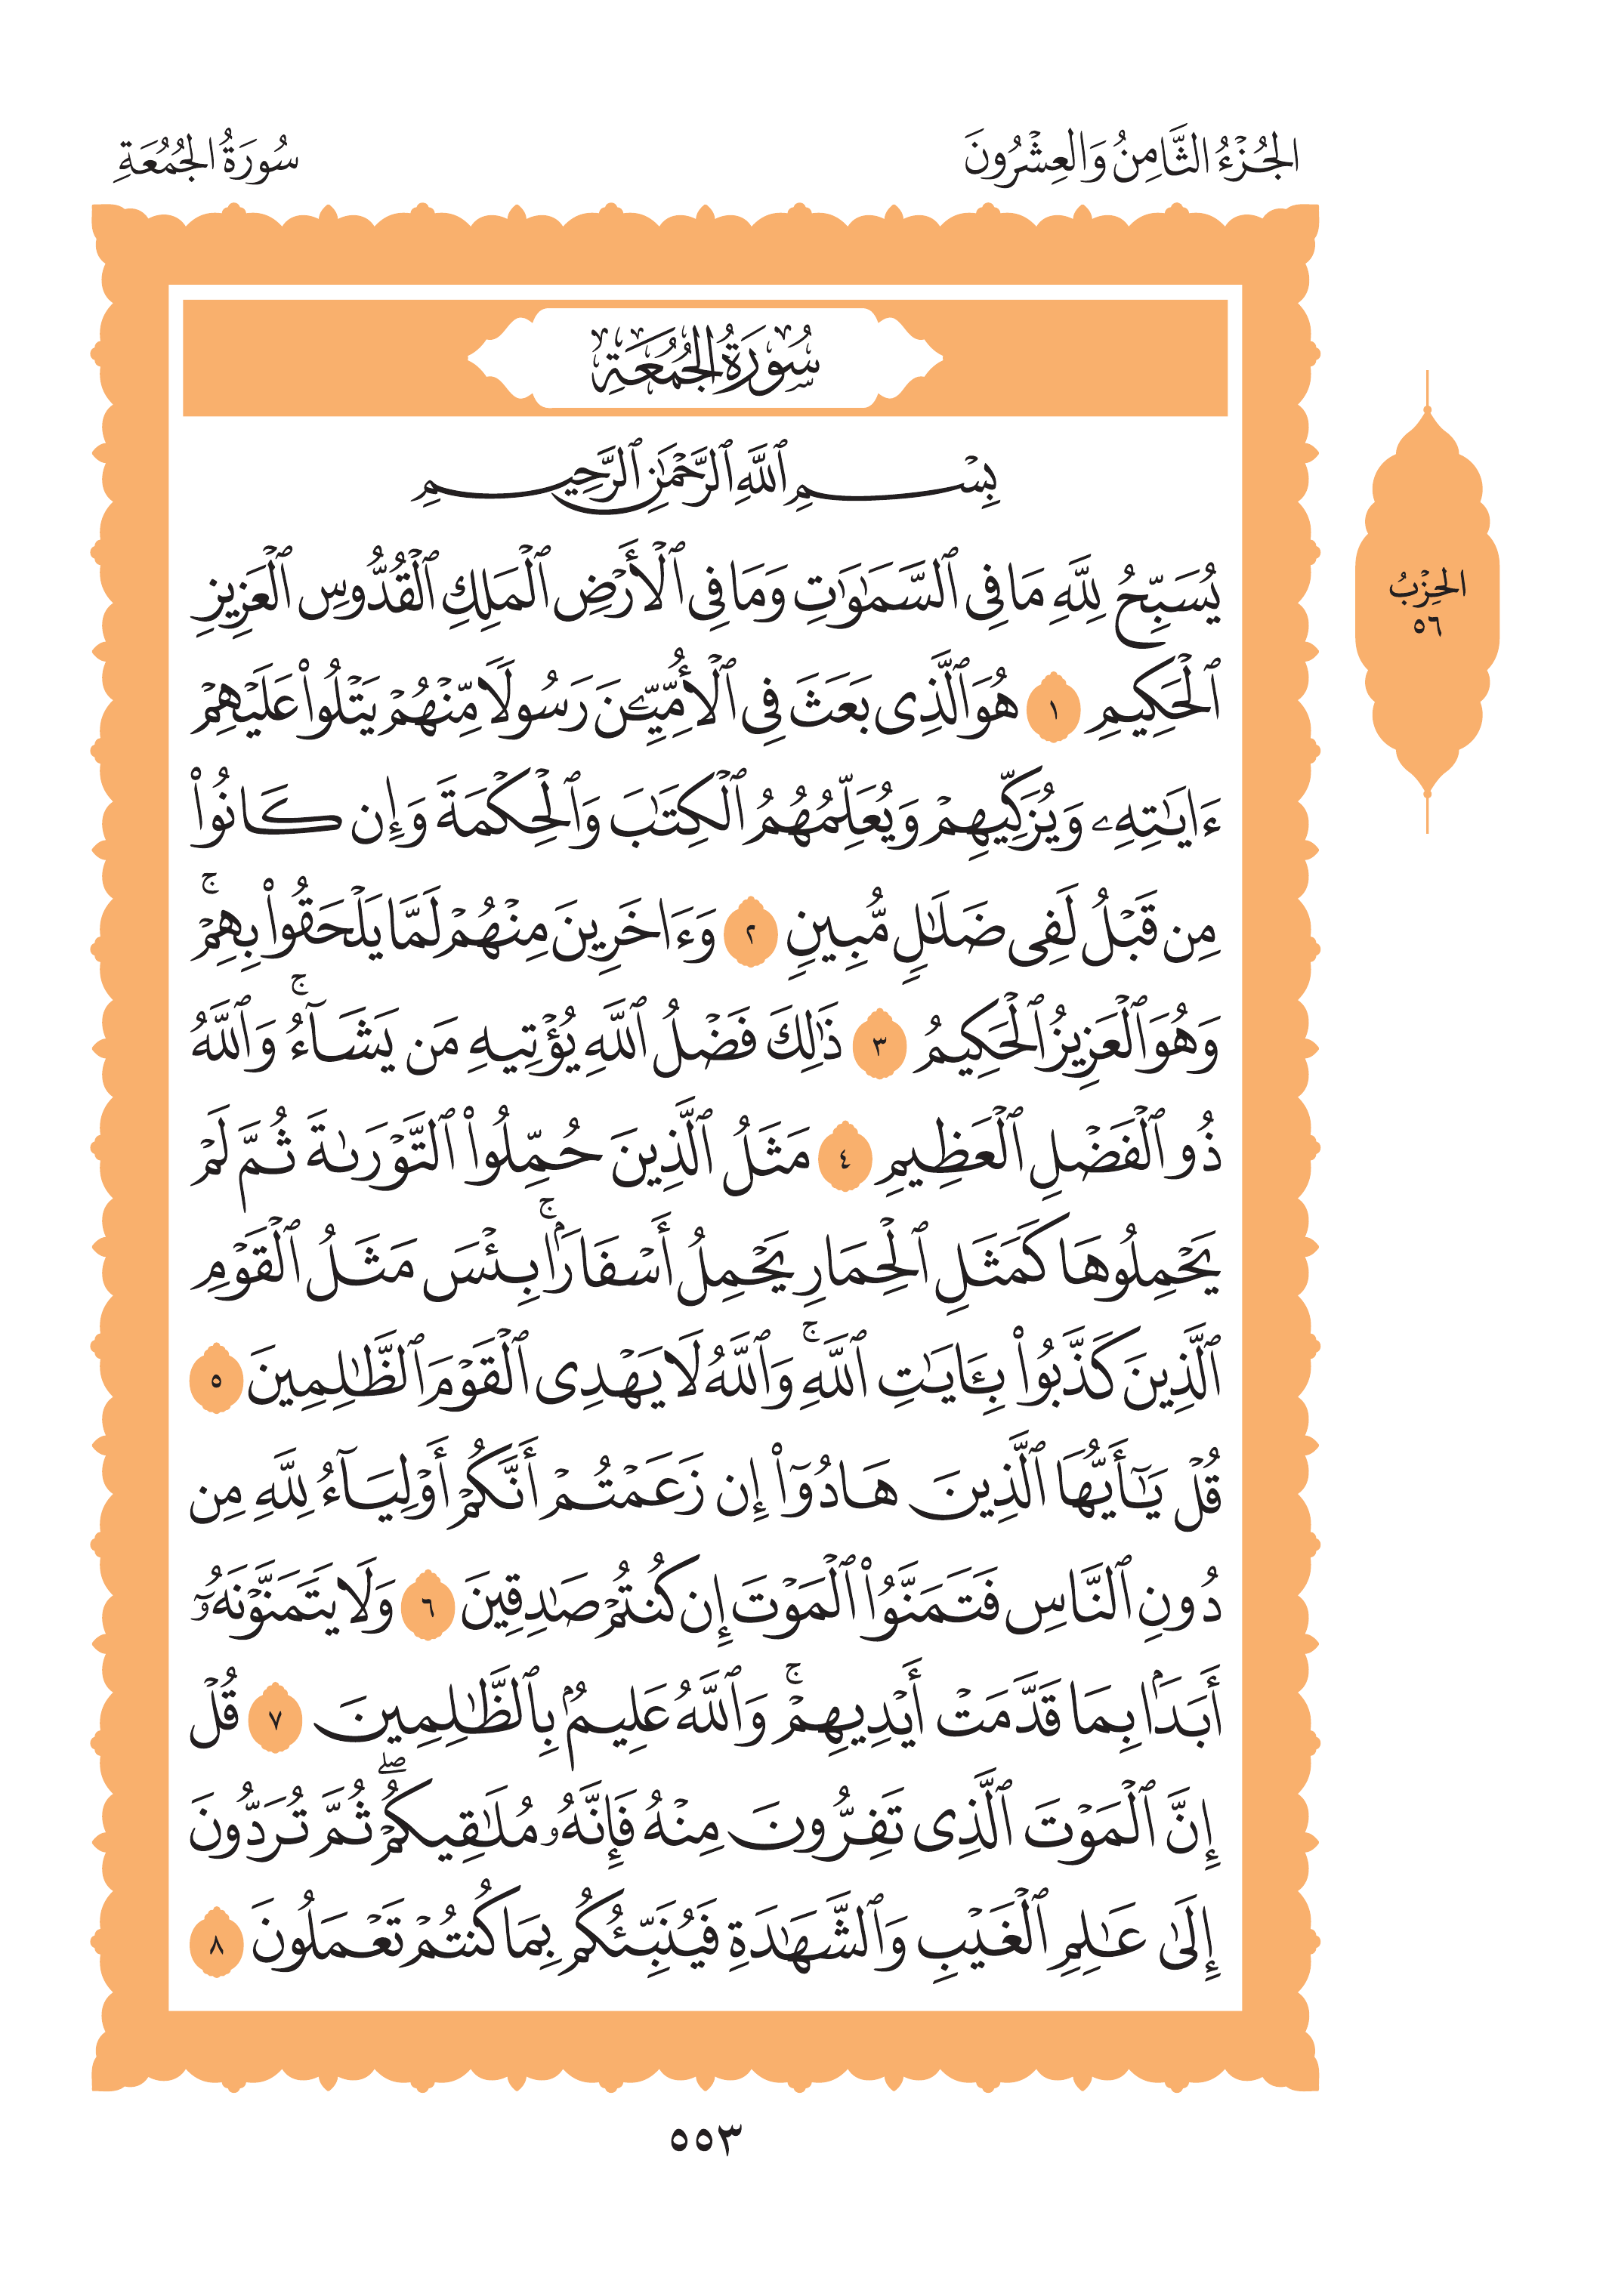 الجُزْءُ الثَّامِنُ وَالعِشْرُونَ
سُورَةُ الجُمُعَةِ
سُورَةُ الجُمُعَةِ
الحِزْبُ
٥٦
بِسْمِ ٱللَّهِ ٱلرَّحْمَٰنِ ٱلرَّحِيمِ
يُسَبِّحُ لِلَّهِ مَا فِى ٱلسَّمَٰوَٰتِ وَمَا فِى ٱلْأَرْضِ ٱلْمَلِكِ ٱلْقُدُّوسِ ٱلْعَزِيزِ
ٱلْحَكِيمِ ١ هُوَ ٱلَّذِى بَعَثَ فِى ٱلْأُمِّيِّـۧنَ رَسُولًا مِّنْهُمْ يَتْلُوا۟ عَلَيْهِمْ
ءَايَٰتِهِۦ وَيُزَكِّيهِمْ وَيُعَلِّمُهُمُ ٱلْكِتَٰبَ وَٱلْحِكْمَةَ وَإِن كَانُوا۟
مِن قَبْلُ لَفِى ضَلَٰلٍ مُّبِينٍ ٢ وَءَاخَرِينَ مِنْهُمْ لَمَّا يَلْحَقُوا۟ بِهِمْ ۚ
وَهُوَ ٱلْعَزِيزُ ٱلْحَكِيمُ ٣ ذَٰلِكَ فَضْلُ ٱللَّهِ يُؤْتِيهِ مَن يَشَآءُ ۚ وَٱللَّهُ
ذُو ٱلْفَضْلِ ٱلْعَظِيمِ ٤ مَثَلُ ٱلَّذِينَ حُمِّلُوا۟ ٱلتَّوْرَىٰةَ ثُمَّ لَمْ
يَحْمِلُوهَا كَمَثَلِ ٱلْحِمَارِ يَحْمِلُ أَسْفَارًۢا ۚ بِئْسَ مَثَلُ ٱلْقَوْمِ
ٱلَّذِينَ كَذَّبُوا۟ بِـَٔايَٰتِ ٱللَّهِ ۚ وَٱللَّهُ لَا يَهْدِى ٱلْقَوْمَ ٱلظَّٰلِمِينَ ٥
قُلْ يَٰٓأَيُّهَا ٱلَّذِينَ هَادُوٓا۟ إِن زَعَمْتُمْ أَنَّكُمْ أَوْلِيَآءُ لِلَّهِ مِن
دُونِ ٱلنَّاسِ فَتَمَنَّوُا۟ ٱلْمَوْتَ إِن كُنتُمْ صَٰدِقِينَ ٦ وَلَا يَتَمَنَّوْنَهُۥٓ
أَبَدًۢا بِمَا قَدَّمَتْ أَيْدِيهِمْ ۚ وَٱللَّهُ عَلِيمٌۢ بِٱلظَّٰلِمِينَ ٧ قُلْ
إِنَّ ٱلْمَوْتَ ٱلَّذِى تَفِرُّونَ مِنْهُ فَإِنَّهُۥ مُلَٰقِيكُمْ ۖ ثُمَّ تُرَدُّونَ
إِلَىٰ عَٰلِمِ ٱلْغَيْبِ وَٱلشَّهَٰدَةِ فَيُنَبِّئُكُم بِمَا كُنتُمْ تَعْمَلُونَ ٨
٥٥٣